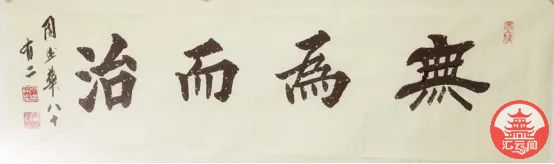 無為而治
周 華八十
有二
汇云阁